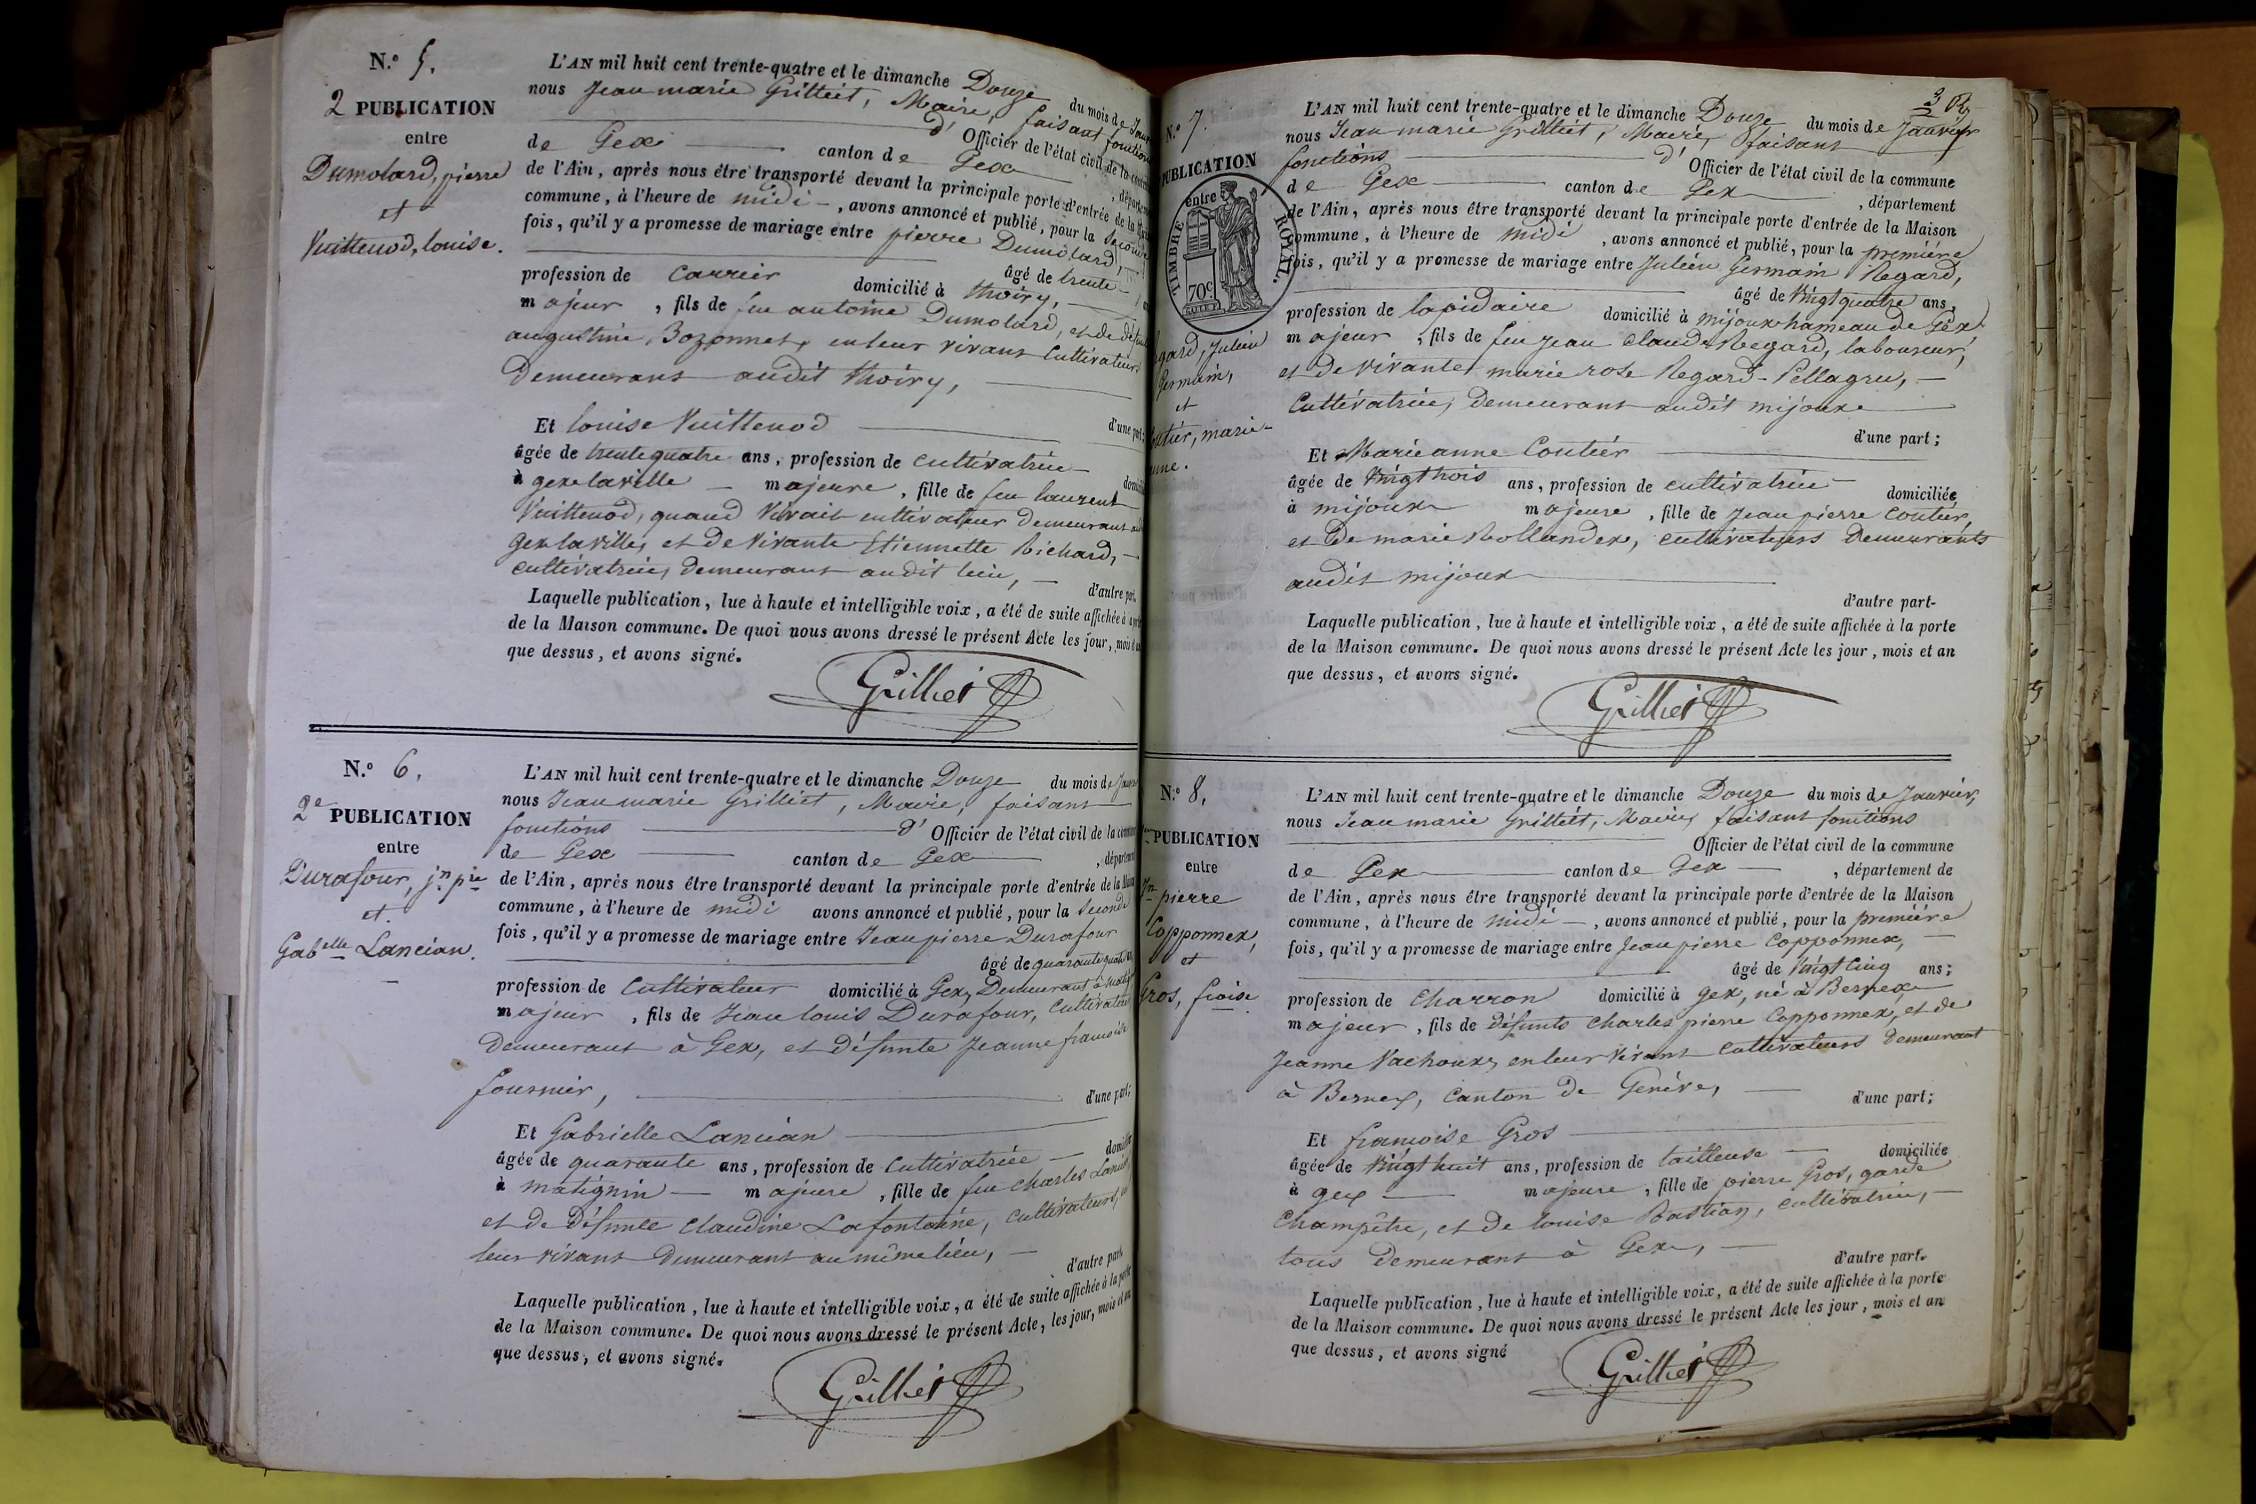 N.° 5.
2 PUBLICATION
entre
Dumolard, pierre
et
Vuittenod, louise.
L'AN mil huit cent trente-quatre et le dimanche Douze du mois de
nous Jean marie Grilliet, Maire, faisant fonctions
d' Officier de l'état civil de la
de Gex canton de Gex
de l'Ain, après nous être transporté devant la principale porte d'entrée de la
commune, à l'heure de midi, avons annoncé et publié, pour la seconde
fois, qu'il y a promesse de mariage entre pierre Dumolard,
âgé de trente
profession de Carrier domicilié à thoiry,
majeur, fils de feu antoine Dumolard, et de
augustine Bozonnet, en leur vivant Cultivateurs
Demeurant audit thoiry,
d'une part;
Et louise Vuittenod
âgée de trente quatre ans, profession de Cultivatrice
à gex la ville majeure, fille de feu laurent
Vuittenod, quand vivait cultivateur demeurant
gex la ville, et de vivante Etiennette Richard,
cultivatrice, demeurant audit lieu,
d'autre part.
Laquelle publication, lue à haute et intelligible voix, a été de suite affichée à
de la Maison commune. De quoi nous avons dressé le présent Acte les jour, mois
que dessus, et avons signé.
Grilliet
N.° 6.
2e PUBLICATION
entre
Durafour, jn. pre
et.
Gabelle Lancian.
L'AN mil huit cent trente-quatre et le dimanche Douze du mois de
nous Jean marie Grilliet, Maire, faisant
fonctions d' Officier de l'état civil de la
de Gex canton de Gex
de l'Ain, après nous être transporté devant la principale porte d'entrée de la
commune, à l'heure de midi avons annoncé et publié, pour la seconde
fois, qu'il y a promesse de mariage entre Jean pierre Durafour
âgé de quarante
profession de Cultivateur domicilié à Gex, Demeurant à
majeur, fils de Jean louis Durafour, Cultivateur
Demeurant à Gex, et défunte Jeanne françoise
fournier,
d'une part;
Et Gabrielle Lancian
âgée de quarante ans, profession de Cultivatrice
à matignin majeure, fille de feu Charles
et de défunte Claudine Lafontaine, cultivateurs,
leur vivant Demeurant au même lieu,
d'autre part
Laquelle publication, lue à haute et intelligible voix, a été de suite affichée à la
de la Maison commune. De quoi nous avons dressé le présent Acte, les jour, mois et an
que dessus, et avons signé.
Grilliet
N.° 7.
PUBLICATION
entre
TIMBRE ROYAL.
70c
Julien
Germain,
et
marie-
L'AN mil huit cent trente-quatre et le dimanche Douze du mois de Janvier
nous Jean marie Grilliet, Maire, faisant
fonctions d' Officier de l'état civil de la commune
de Gex canton de Gex, département
de l'Ain, après nous être transporté devant la principale porte d'entrée de la Maison
commune, à l'heure de midi, avons annoncé et publié, pour la première
fois, qu'il y a promesse de mariage entre Julien Germain Regard,
âgé de vingt quatre ans,
profession de lapidaire domicilié à mijoux hameau de Gex
majeur, fils de feu Jean Claude Regard, laboureur,
et de vivante marie rose Regard-Pellagru,
Cultivatrice, demeurant audit mijoux
d'une part;
Et Marie anne Coutier
âgée de vingt trois ans, profession de cultivatrice domiciliée
à mijoux majeure, fille de Jean pierre Coutier,
et de marie Rollandex, cultivateurs Demeurants
audit mijoux
d'autre part-
Laquelle publication, lue à haute et intelligible voix, a été de suite affichée à la porte
de la Maison commune. De quoi nous avons dressé le présent Acte les jour, mois et an
que dessus, et avons signé.
Grilliet
N.° 8.
PUBLICATION
entre
Jn pierre
Copponnex,
et
Gros, froise.
L'AN mil huit cent trente-quatre et le dimanche Douze du mois de Janvier,
nous Jean marie Grilliet, Maire, faisant fonctions
Officier de l'état civil de la commune
de Gex canton de Gex, département de
de l'Ain, après nous être transporté devant la principale porte d'entrée de la Maison
commune, à l'heure de midi, avons annoncé et publié, pour la première
fois, qu'il y a promesse de mariage entre Jean pierre Copponnex,
âgé de vingt cinq ans;
profession de Charron domicilié à gex, né à Bernex
majeur, fils de défunts Charles pierre Copponnex, et de
Jeanne Vachoux, en leur vivant Cultivateurs demeurant
à Bernex, Canton de Genève,
d'une part;
Et françoise Gros
âgée de vingt huit ans, profession de tailleuse domiciliée
à gex majeure, fille de pierre Gros, garde
Champêtre, et de louise Bastian, cultivatrice,
tous demeurant à Gex,
d'autre part.
Laquelle publication, lue à haute et intelligible voix, a été de suite affichée à la porte
de la Maison commune. De quoi nous avons dressé le présent Acte les jour, mois et an
que dessus, et avons signé
Grilliet